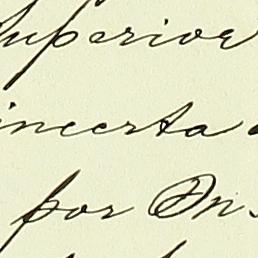 Superior
incerta
por M.